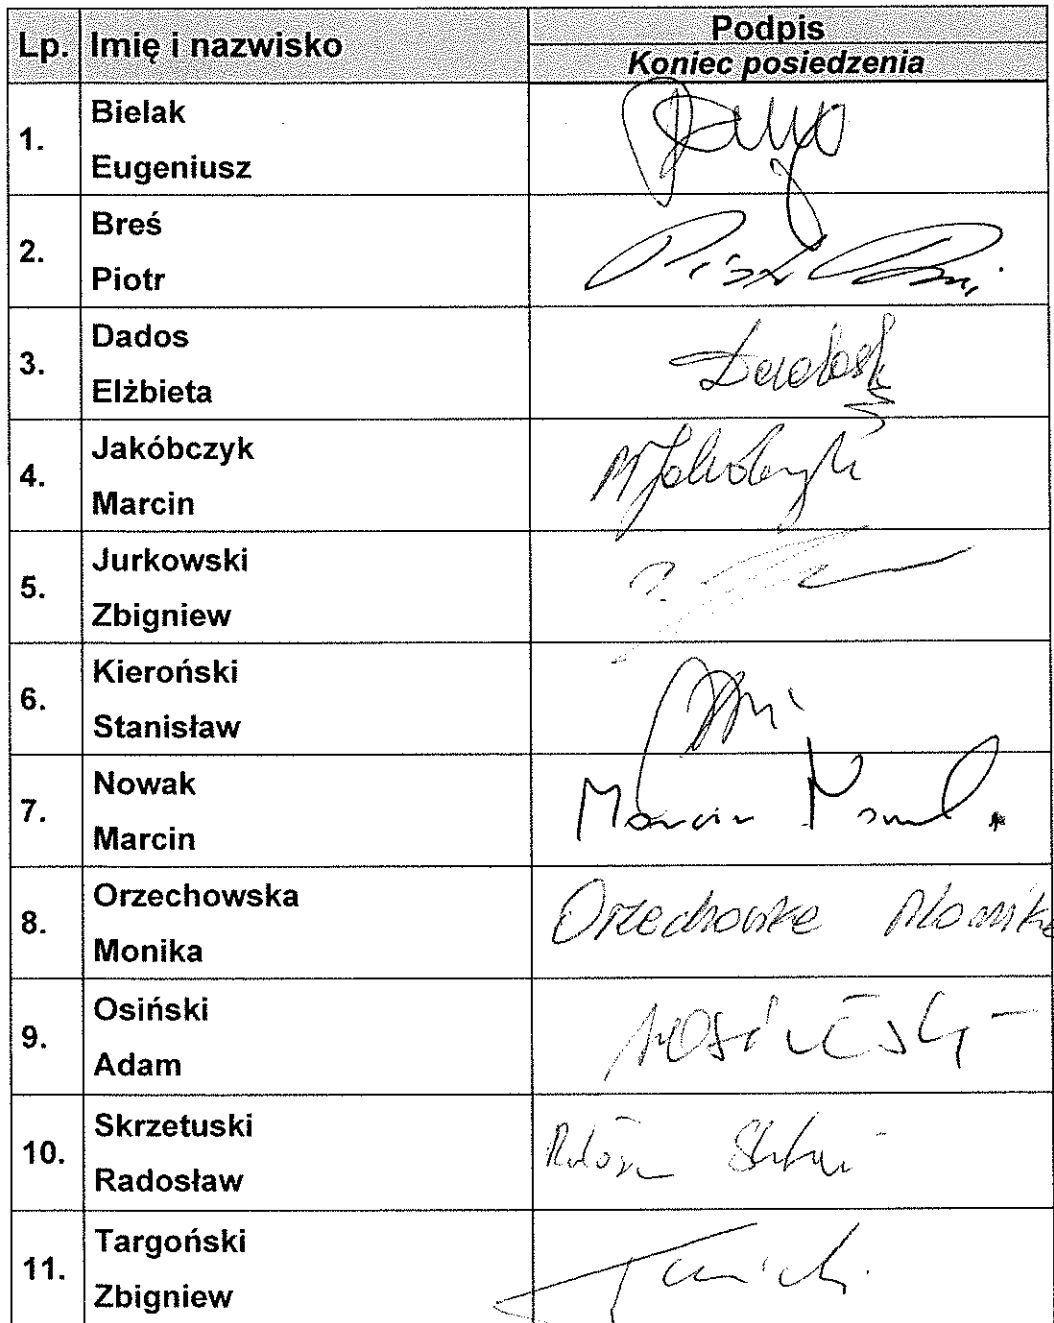 Lp. Imię i nazwisko Podpis
Koniec posiedzenia
1. Bielak
Eugeniusz
2. Breś
Piotr
3. Dados
Elżbieta
4. Jakóbczyk
Marcin
5. Jurkowski
Zbigniew
6. Kieroński
Stanisław
7. Nowak
Marcin
Marcin
8. Orzechowska
Monika
Orzechowska Monika
9. Osiński
Adam
10. Skrzetuski
Radosław
11. Targoński
Zbigniew